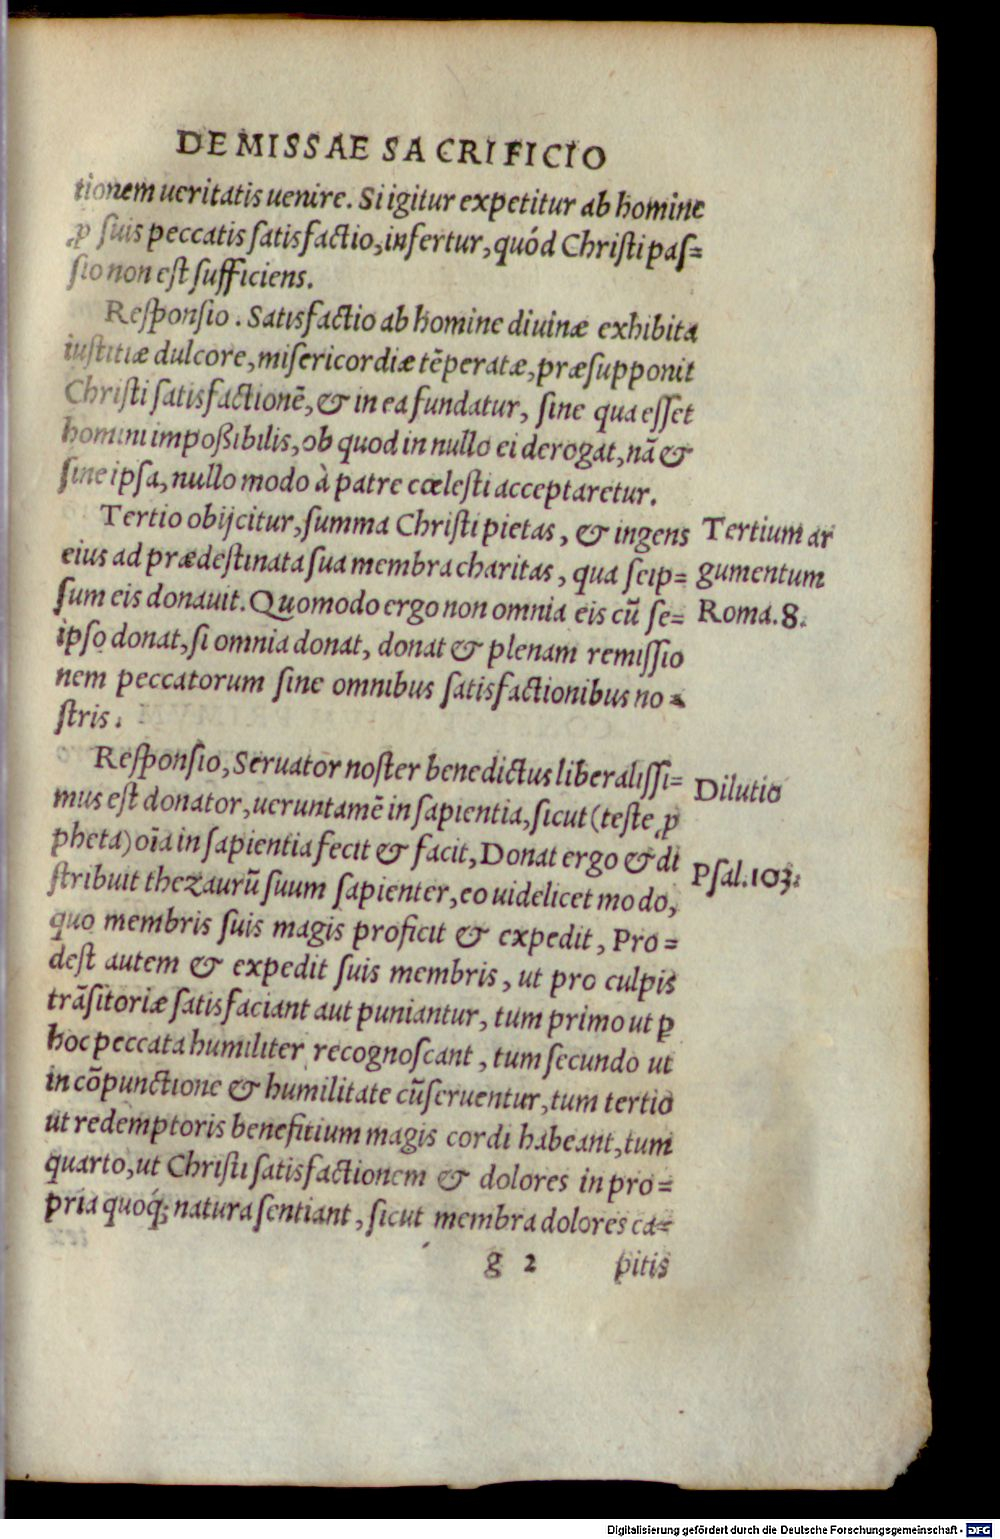 DE MISSAE SACRIFICIO
tionem ueritatis uenire. Si igitur expetitur ab homine
ꝓ ſuis peccatis ſatisfactio, infertur, quód Chriſti paſ=
ſio non eſt ſufficiens.
Reſponſio. Satisfactio ab homine diuinæ exhibita
iuſtitiæ dulcore, miſericordiæ tẽperatæ, præſupponit
Chriſti ſatisfactionẽ, & in ea fundatur, ſine qua eſſet
homini impoßibilis, ob quod in nullo ei derogat, nã &
ſine ipſa, nullo modo à patre cœleſti acceptaretur.
Tertio obijcitur, ſumma Chriſti pietas, & ingens
Tertium ar
eius ad prædeſtinata ſua membra charitas, qua ſeip=
gumentum
ſum eis donauit. Quomodo ergo non omnia eis cũ ſe=
Roma. 8.
ipſo donat, ſi omnia donat, donat & plenam remiſſio
nem peccatorum ſine omnibus ſatisfactionibus no=
ſtris.
Reſponſio, Seruator noſter benedictus liberaliſſi=
Dilutio
mus eſt donator, ueruntamẽ in ſapientia, ſicut (teſte ꝓ
pheta) oĩa in ſapientia fecit & facit, Donat ergo & di
Pſal. 103.
ſtribuit thezaurũ ſuum ſapienter, eo uidelicet modo,
quo membris ſuis magis proficit & expedit, Pro=
deſt autem & expedit ſuis membris, ut pro culpis
trãſitoriæ ſatisfaciant aut puniantur, tum primo ut ꝑ
hoc peccata humiliter recognoſcant, tum ſecundo ut
in cõpunctione & humilitate cũſeruentur, tum tertio
ut redemptoris benefitium magis cordi habeant, tum
quarto, ut Chriſti ſatisfactionem & dolores in pro=
pria quoq; natura ſentiant, ſicut membra dolores ca=
g 2
pitis
Digitalisierung gefördert durch die Deutsche Forschungsgemeinschaft - DFG